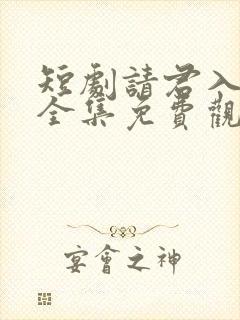 短劇請君入
全集免費觀
宴會之神